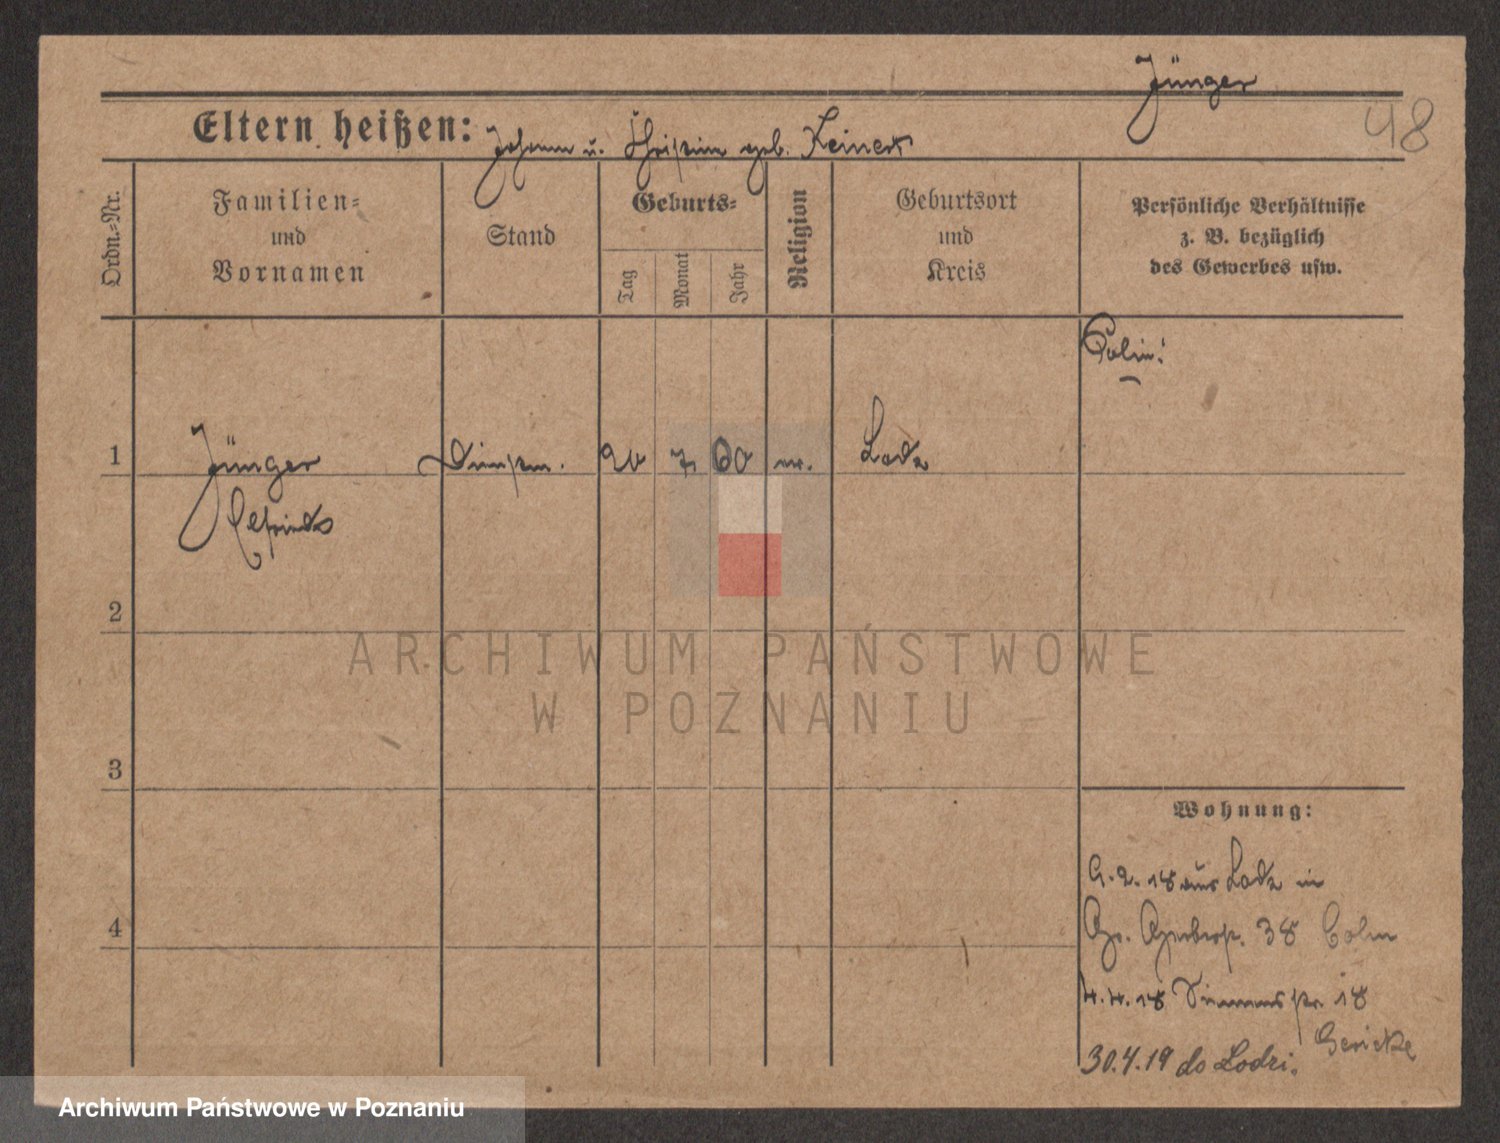 Jünger
48
Eltern heißen: Johann u. Christine geb. Leinert
Ordn.=Nr.
Familien=
und
Vornamen
Stand
Geburts=
Tag
Monat
Jahr
Religion
Geburtsort
und
Kreis
Persönliche Verhältnisse
z. B. bezüglich
des Gewerbes usw.
1
Jünger
Dienstm. 20 7. 60 Lodz
2
3
4
Wohnung:
18 aus Lodz in
38
4.4.18 18
Gericke
30.4.19 do Lodzi.
ARCHIWUM PAŃSTWOWE
W POZNANIU
Archiwum Państwowe w Poznaniu